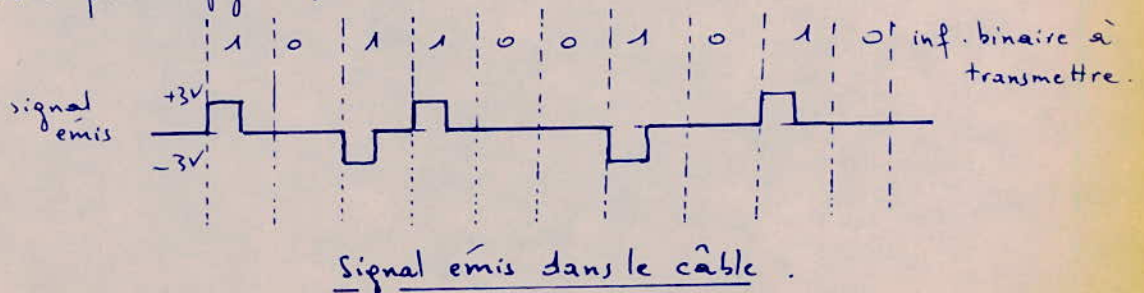 1 0 1 1 0 0 1 0 1 0 inf. binaire à
transmettre.
signal
émis
+3V
-3V
Signal émis dans le câble.